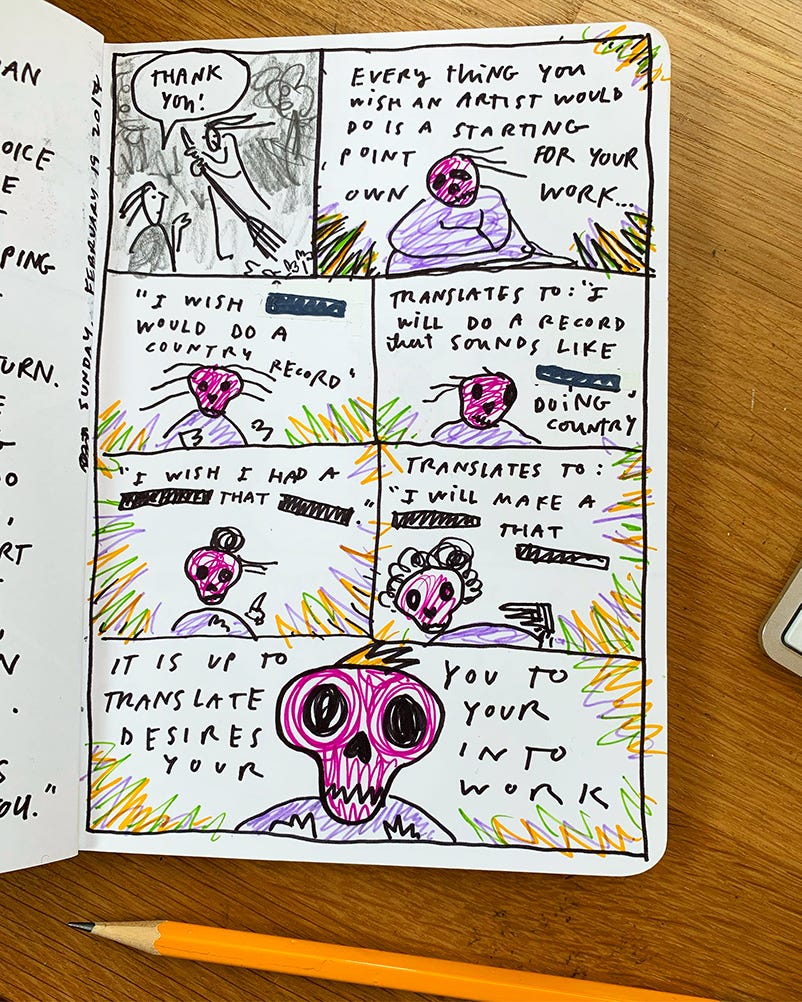 AN
OICE
E
T
PING
TURN.
E
T
O
,
RT
T
,
N
.
S
OU."
SUNDAY. FEBRUARY 19 201
THANK
YOU!
EVERY thing YOU
WISH AN ARTIST WOULD
DO IS A STARTING
POINT FOR YOUR
OWN WORK...
"I WISH
WOULD DO A
COUNTRY RECORD"
TRANSLATES TO: "I
WILL DO A RECORD
that SOUNDS LIKE
"
DOING
COUNTRY
"I WISH I HAD A
THAT ."
TRANSLATES TO:
"I WILL MAKE A
THAT
IT IS UP TO YOU TO
TRANSLATE YOUR
DESIRES INTO
YOUR WORK